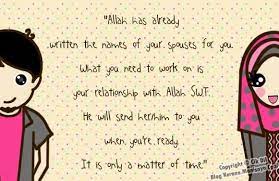 "Allah has already
written the names of your spouses for you.
What you need to work on is
your relationship with Allah SWT.
He will send her/him to you
when you're ready.
It is only a matter of time."
Copyright ©
Blog